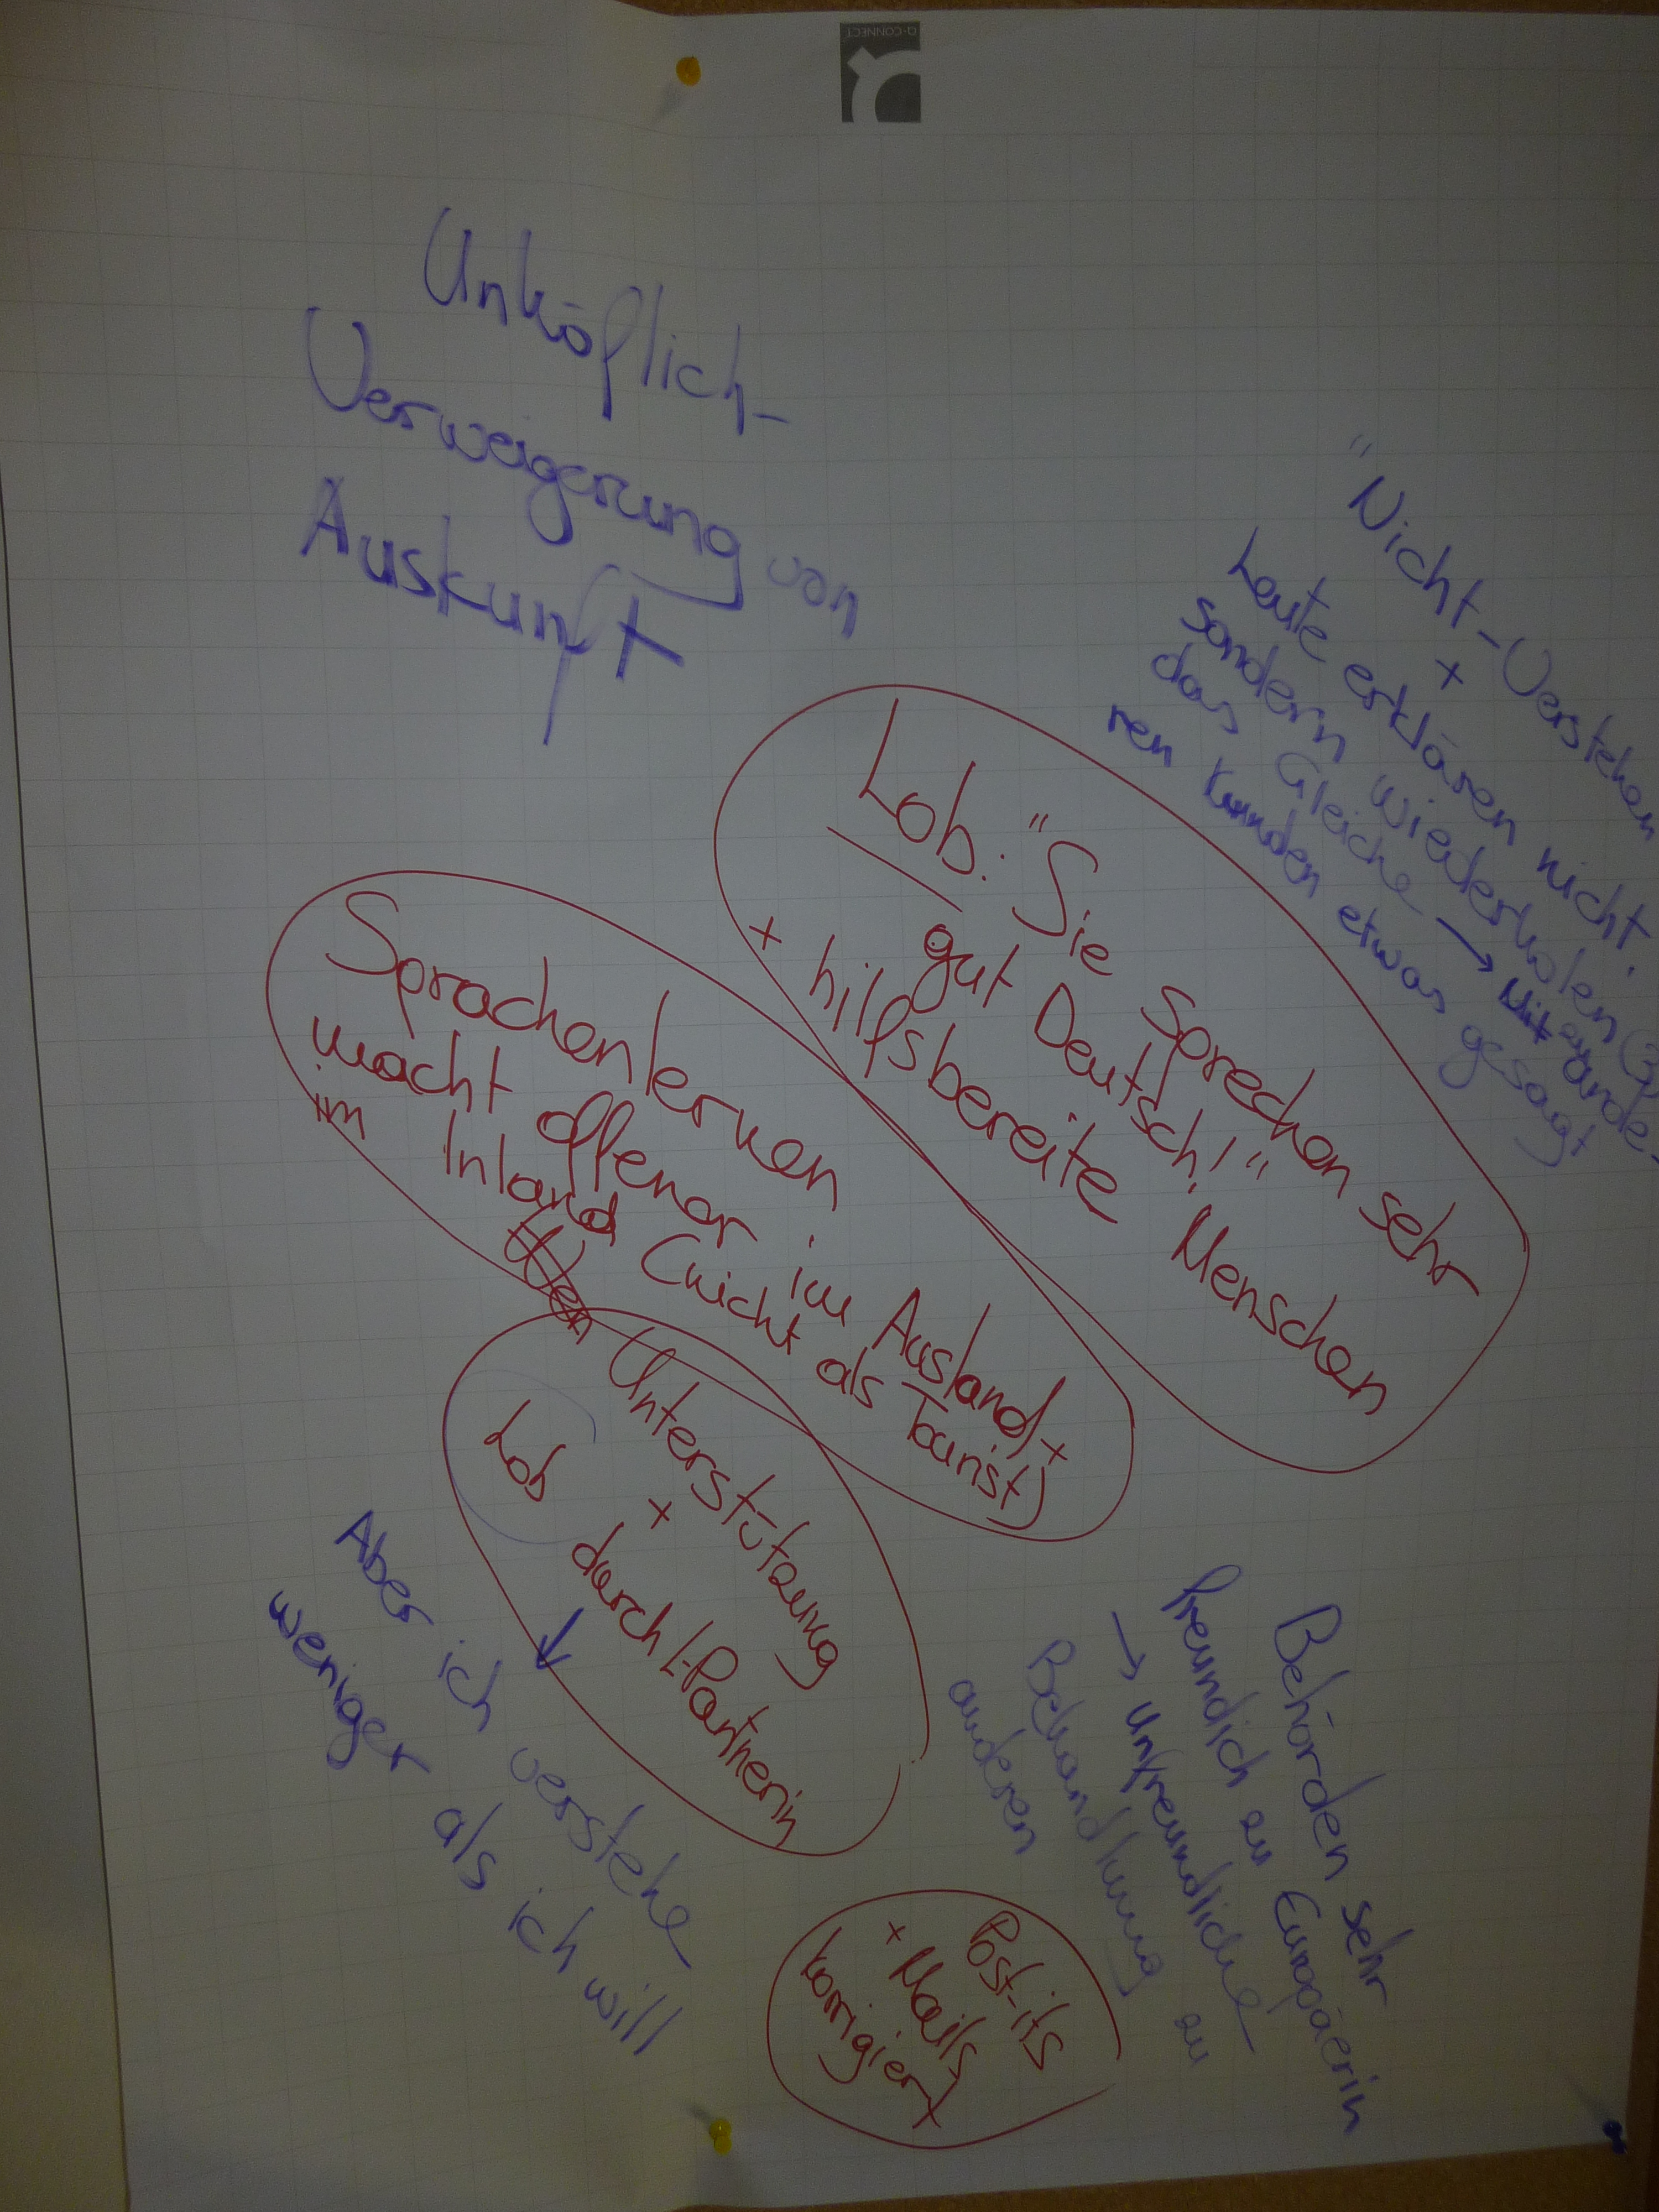 Q-CONNECT
Unhöflich-
Verweigerung von
Auskunft
"Nicht-Verstehen
+
Leute erklären nicht,
sondern wiederholen
das Gleiche → Mit ande-
ren Kunden etwas gesagt
Lob: "Sie sprechen sehr
gut Deutsch!"
+ hilfsbereite Menschen
Sprachenlernen
macht offener im Ausland +
im Inland (nicht als Tourist)
Unterstützung
+
Lob durch L-Partnerin
↓
Aber ich verstehe
weniger als ich will
Behörden sehr
freundlich zu Europäerin
→ unfreundliche
Behandlung zu
anderen
Post-its
+ Mails
korrigiert